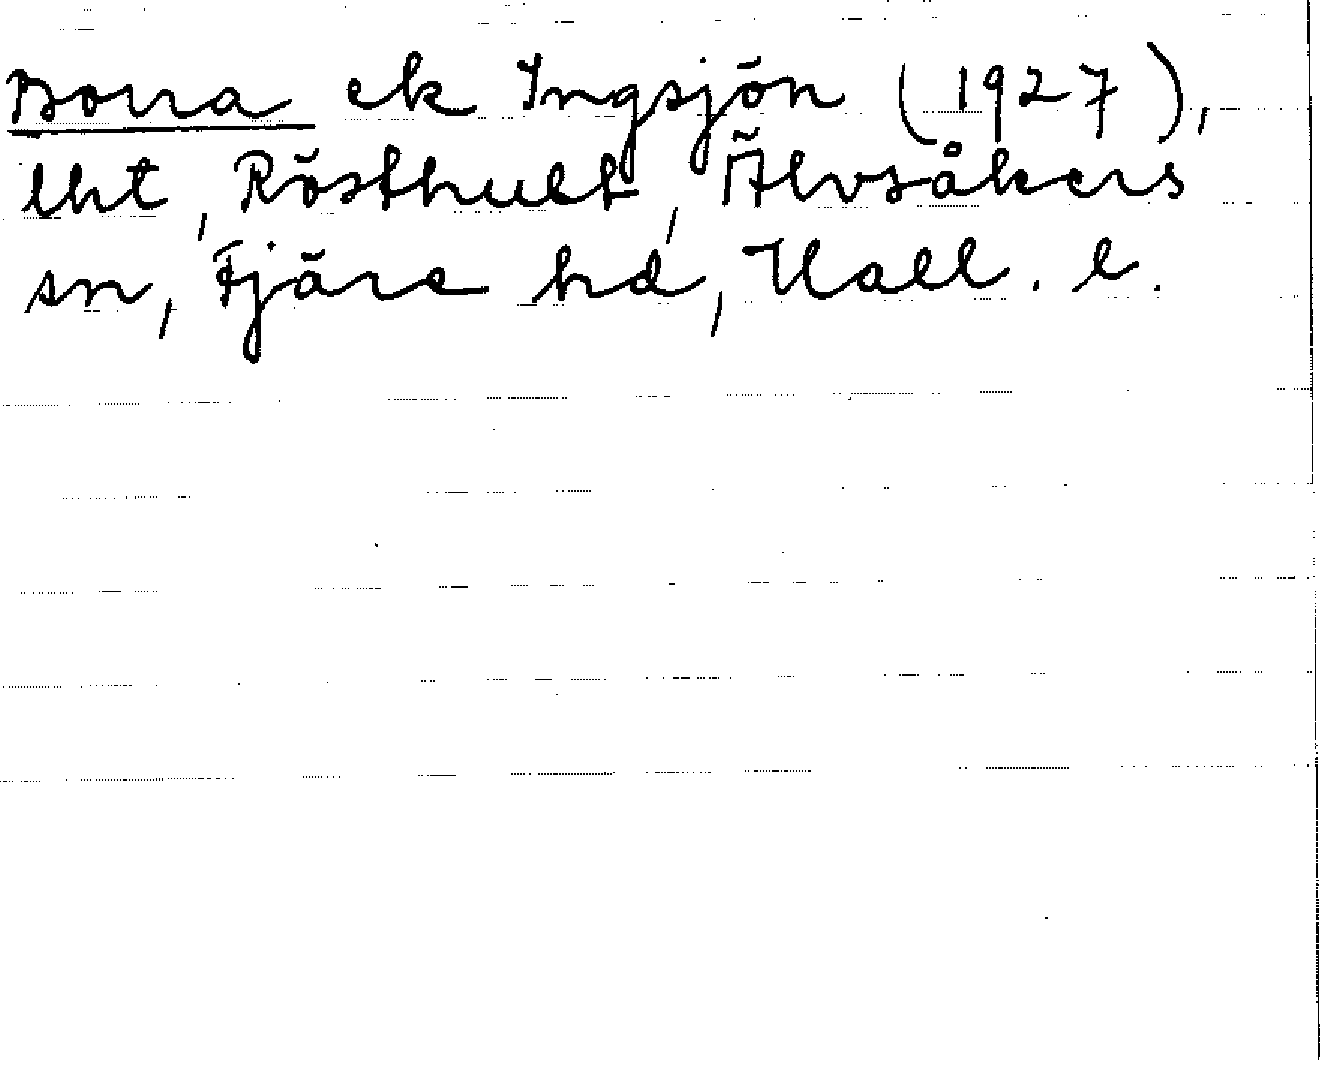 Borra ek Ingsjön (1927),
lht, Rösthult, Älvsåkers
sn, Fjäre hd, Hall. l.